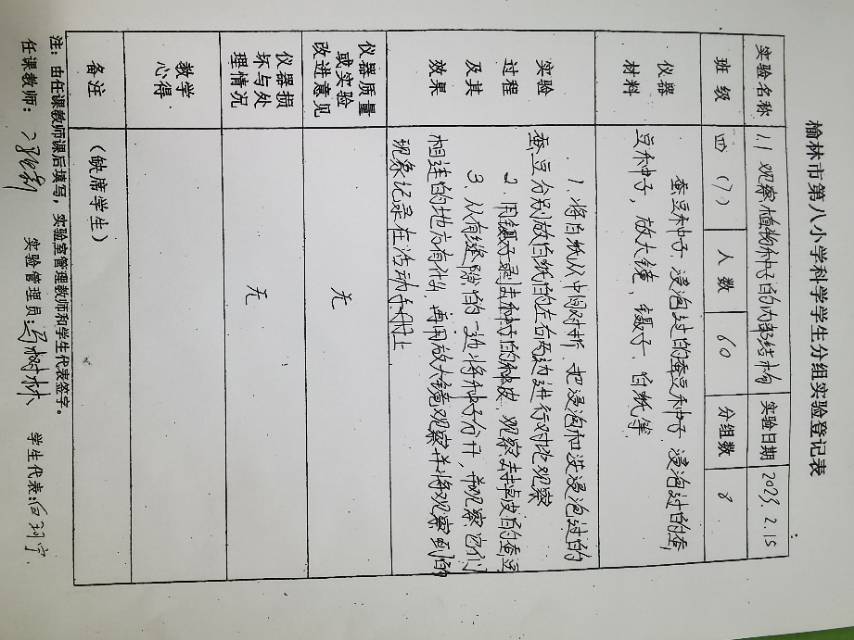 榆林市第八小学科学学生分组实验登记表
实验名称 1.1 观察植物种子的内部结构 实验日期 2023.2.15
班级 四(7) 人数 60 分组数 8
仪器
材料
蚕豆种子、浸泡过的蚕豆种子、浸泡过的蚕
豆种子，放大镜，镊子，白纸等
实验
过程
及其
效果
1、将白纸从中间对折，把浸泡和没浸泡过的
蚕豆分别放白纸的左右两边进行对比观察
2、用镊子剥去种子的种皮，观察去掉皮的蚕豆
3、从有缝隙的一边将种子分开，并观察它们
相连的地方有什么，再用放大镜观察并将观察到的
现象记录在活动手册上
仪器质量
或实验
改进意见
无
仪器损
坏与处
理情况
无
教学
心得
备注
（缺席学生）
注：由任课教师课后填写，实验室管理教师和学生代表签字。
任课教师： 实验管理员:马树林 学生代表: